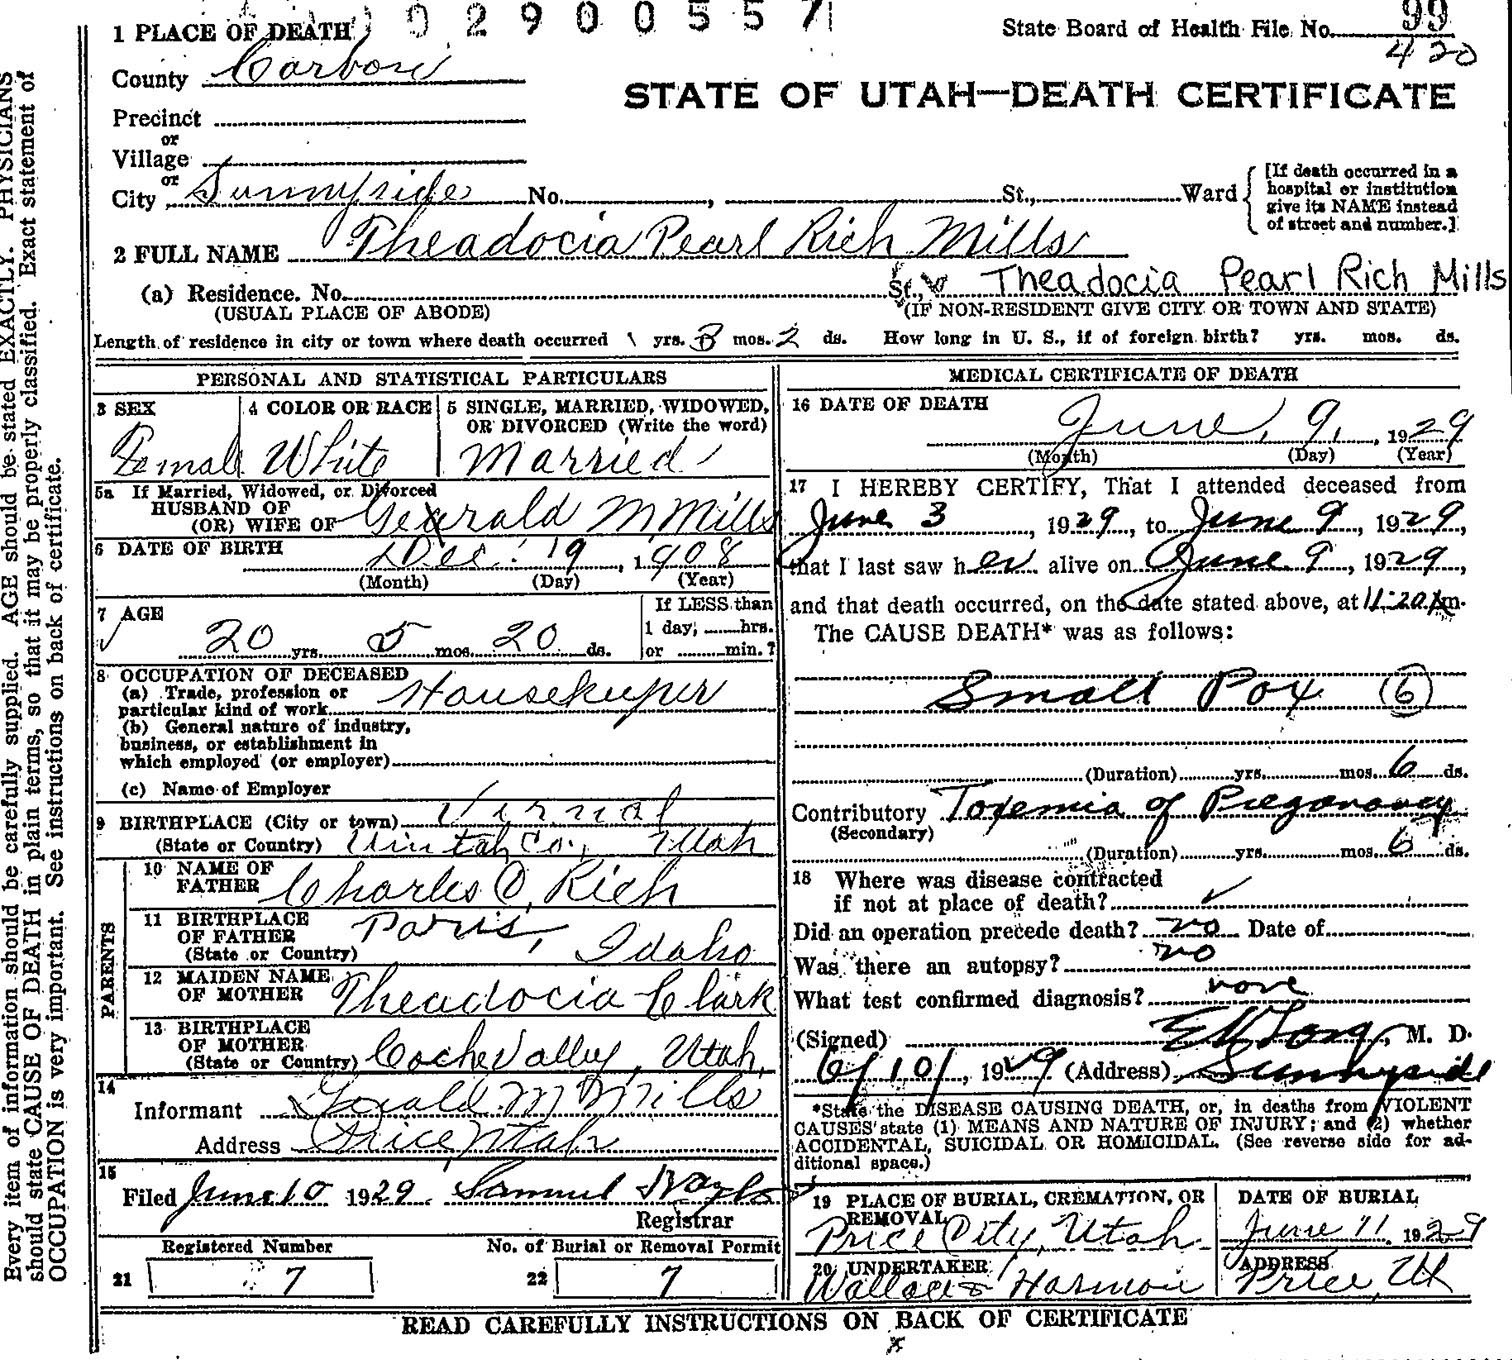 0 2 9 0 0 5 5 7
1 PLACE OF DEATH
State Board of Health File No. 99
420
County Carbon
STATE OF UTAH—DEATH CERTIFICATE
Precinct
or
Village
or
City Sunnyside No. , St., Ward
[If death occurred in a
hospital or institution
give its NAME instead
of street and number.]
2 FULL NAME Theadocia Pearl Rich Mills
(a) Residence. No. St., Theadocia Pearl Rich Mills
(USUAL PLACE OF ABODE) (IF NON-RESIDENT GIVE CITY OR TOWN AND STATE)
Length of residence in city or town where death occurred 1 yrs. 3 mos. 2 ds. How long in U. S., if of foreign birth? yrs. mos. ds.
PERSONAL AND STATISTICAL PARTICULARS
3 SEX 4 COLOR OR RACE 5 SINGLE, MARRIED, WIDOWED,
OR DIVORCED (Write the word)
Female White Married
5a If Married, Widowed, or Divorced
HUSBAND OF
(OR) WIFE OF Gerald M Mills
6 DATE OF BIRTH Dec. 19, 1908
(Month) (Day) (Year)
7 AGE If LESS than
1 day, hrs.
20 yrs. 5 mos. 20 ds. or min.?
8 OCCUPATION OF DECEASED
(a) Trade, profession or
particular kind of work Housekeeper
(b) General nature of industry,
business, or establishment in
which employed (or employer)
(c) Name of Employer
9 BIRTHPLACE (City or town) Vernal
(State or Country) Uintah Co., Utah
PARENTS
10 NAME OF
FATHER Charles C. Rich
11 BIRTHPLACE
OF FATHER Paris, Idaho
(State or Country)
12 MAIDEN NAME
OF MOTHER Theadocia Clark
13 BIRTHPLACE
OF MOTHER
(State or Country) Cache Valley, Utah,
14
Informant Gerald M Mills
Address Price, Utah
15
Filed June 10 1929 Samuel
Registrar
Registered Number No. of Burial or Removal Permit
21 7 22 7
MEDICAL CERTIFICATE OF DEATH
16 DATE OF DEATH
June, 9, 1929
(Month) (Day) (Year)
17 I HEREBY CERTIFY, That I attended deceased from
June 3, 1929, to June 9, 1929,
that I last saw her alive on June 9, 1929,
and that death occurred, on the date stated above, at 11:20 m.
The CAUSE DEATH* was as follows:
Small Pox (6)
(Duration) yrs. mos. 6 ds.
Contributory Toxemia of Pregnancy
(Secondary)
(Duration) yrs. mos. 6 ds.
18 Where was disease contracted
if not at place of death?
Did an operation precede death? no Date of
Was there an autopsy? no
What test confirmed diagnosis? none
(Signed) M. D.
6/10/, 1929 (Address) Sunnyside
*State the DISEASE CAUSING DEATH, or, in deaths from VIOLENT
CAUSES state (1) MEANS AND NATURE OF INJURY; and (2) whether
ACCIDENTAL, SUICIDAL OR HOMICIDAL. (See reverse side for ad-
ditional space.)
19 PLACE OF BURIAL, CREMATION, OR DATE OF BURIAL
REMOVAL
Price City, Utah June 11, 1929
20 UNDERTAKER ADDRESS
Wallace & Harmon Price, Ut
READ CAREFULLY INSTRUCTIONS ON BACK OF CERTIFICATE
Every item of information should be carefully supplied. AGE should be stated EXACTLY. PHYSICIANS
should state CAUSE OF DEATH in plain terms, so that it may be properly classified. Exact statement of
OCCUPATION is very important. See instructions on back of certificate.